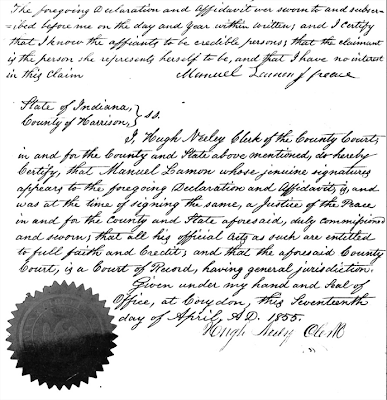 The foregoing Declaration and Affidavit wer sworn to and subscr-
ibed before me on the day and year within written; and I Certify
that I know the affiants to be credible persons; that the claimant
is the person she represents herself to be, and that I have no interest
in this Claim Manuel Lamon J peace
State of Indiana,
County of Harrison, } SS.
I, Hugh Neeley Clerk of the County Court,
in and for the County and State above mentioned, do hereby
Certify, that Manuel Lamon whose jenuine signatures
appears to the foregoing Declaration and Affidavit, is, and
was at the time of signing the same, a Justice of the Peace
in and for the County and State aforesaid, duly commissioned
and sworn; that all his official Acts as such are entitled
to full faith and Credit; and that the aforesaid County
Court, is a Court of Record, having general jurisdiction.
Given under my hand and Seal of
Office, at Corydon, this Seventeenth
day of April, A.D. 1855.
Hugh Neely Clerk